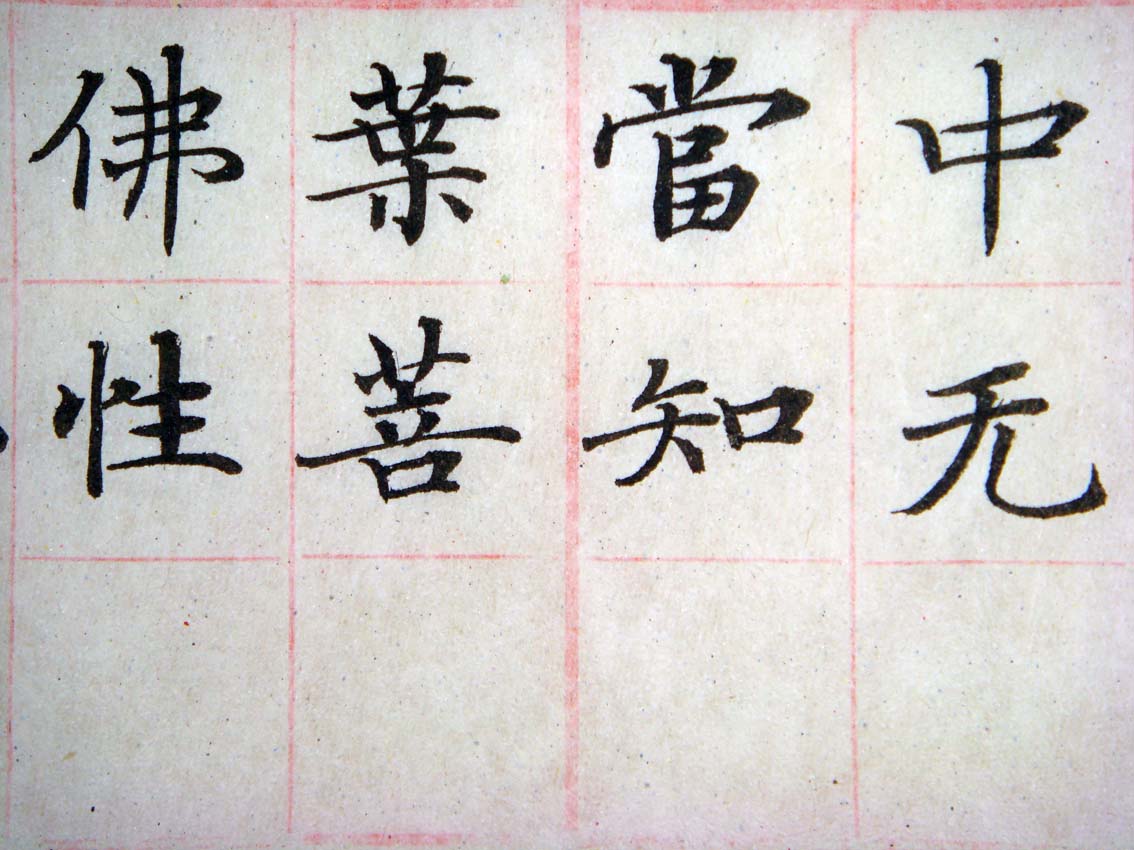 中无
當知
葉菩
佛性